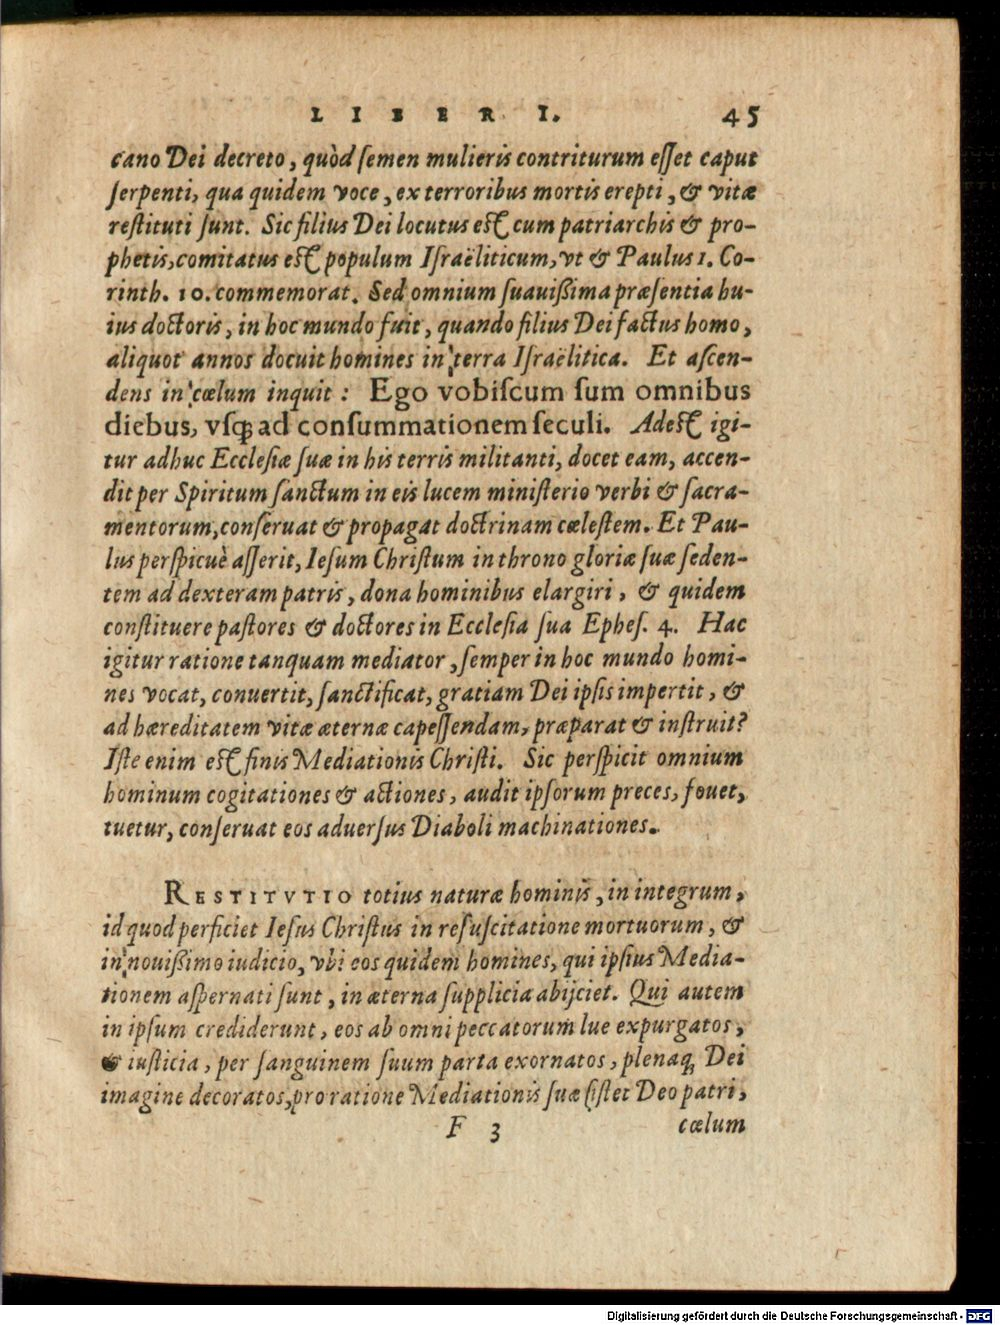 LIBER I. 45
cano Dei decreto, quòd ſemen mulieris contriturum eſſet caput
ſerpenti, qua quidem voce, ex terroribus mortis erepti, & vitæ
reſtituti ſunt. Sic filius Dei locutus eſt cum patriarchis & pro-
phetis, comitatus eſt populum Iſraëliticum, vt & Paulus 1. Co-
rinth. 10. commemorat. Sed omnium ſuauißima præſentia hu-
ius doctoris, in hoc mundo fuit, quando filius Dei factus homo,
aliquot annos docuit homines in terra Iſraëlitica. Et aſcen-
dens in cœlum inquit: Ego vobiſcum ſum omnibus
diebus, vſq; ad conſummationem ſeculi. Adeſt igi-
tur adhuc Eccleſiæ ſuæ in his terris militanti, docet eam, accen-
dit per Spiritum ſanctum in eis lucem miniſterio verbi & ſacra-
mentorum, conſeruat & propagat doctrinam cæleſtem. Et Pau-
lus perſpicuè aſſerit, Ieſum Chriſtum in throno gloriæ ſuæ ſeden-
tem ad dexteram patris, dona hominibus elargiri, & quidem
conſtituere paſtores & doctores in Eccleſia ſua Epheſ. 4. Hac
igitur ratione tanquam mediator, ſemper in hoc mundo homi-
nes vocat, conuertit, ſanctificat, gratiam Dei ipſis impertit, &
ad hæreditatem vitæ æternæ capeſſendam, præparat & inſtruit?
Iſte enim eſt finis Mediationis Chriſti. Sic perſpicit omnium
hominum cogitationes & actiones, audit ipſorum preces, fouet,
tuetur, conſeruat eos aduerſus Diaboli machinationes.
RESTITVTIO totius naturæ hominis, in integrum,
id quod perficiet Ieſus Chriſtus in reſuſcitatione mortuorum, &
in nouißimo iudicio, vbi eos quidem homines, qui ipſius Media-
tionem aſpernati ſunt, in æterna ſupplicia abijciet. Qui autem
in ipſum crediderunt, eos ab omni peccatorum lue expurgatos,
& iuſticia, per ſanguinem ſuum parta exornatos, plenaq; Dei
imagine decoratos, pro ratione Mediationis ſuæ ſiſtet Deo patri,
F 3 cœlum
Digitalisierung gefördert durch die Deutsche Forschungsgemeinschaft - DFG